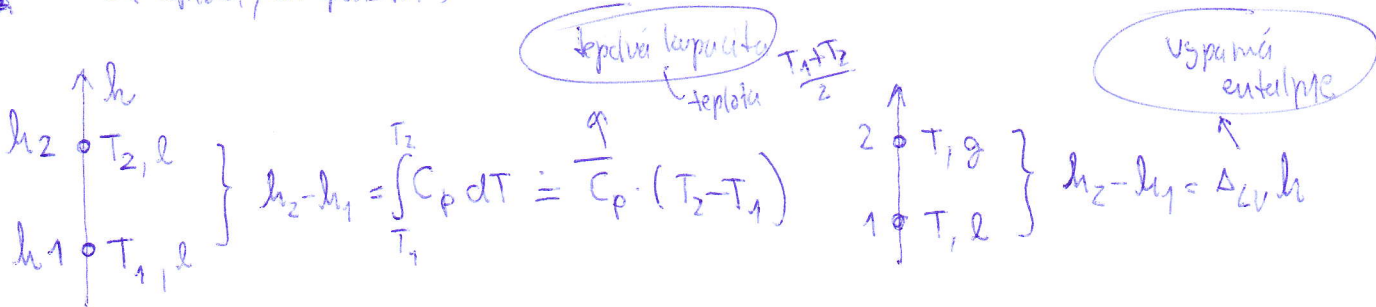 tepelná kapacita
teplota
T₁+T₂ / 2
výparná
entalpie
h
h2
T₂, l
h1
T₁, l
h₂-h₁ = ∫_{T₁}^{T₂} C_p dT ≐ C̅_p · (T₂-T₁)
2 T, g
1 T, l
h₂-h₁ = Δ_{LV} h